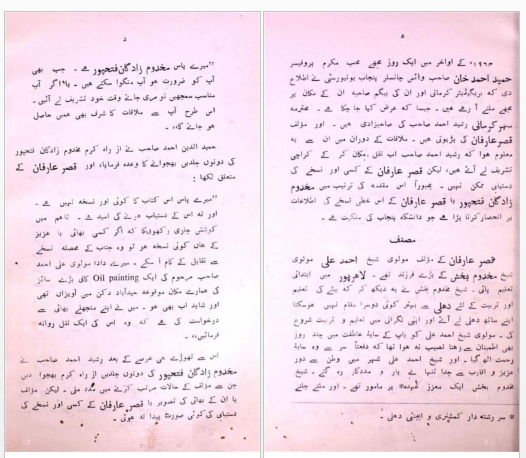 د
”میرے پاس مخدوم زادگان فتحپور ہے - جب بھی
آپ کو ضرورت ہو آپ منگوا سکتے ہیں - یا اگر آپ
مناسب سمجھیں تو مری جاتے وقت خود تشریف لے آئیں -
اس طرح آپ سے ملاقات کا شرف بھی ہمیں حاصل
ہو جائے گا“ -
حمید الدین احمد صاحب نے از راہ کرم مخدوم زادگان فتحپور
کی دونوں جلدیں بھجوانے کا وعدہ فرمایا، اور قصر عارفان کے
متعلق لکھا :
”میرے پاس اس کتاب کا کوئی اور نسخہ نہیں ہے -
اور نہ اس کے دستیاب ہونے کی امید ہے - تاہم میں
کوشش جاری رکھوں گا کہ اگر کسی بھائی یا عزیز
کے ہاں کوئی نسخہ ہو تو وہ جناب کے محصلہ نسخے
سے تقابل کے کام آ سکے - میرے دادا مولوی علی احمد
صاحب مرحوم کی ایک Oil painting کافی بڑے سائز
کی ہمارے مکان موقوعہ حیدآباد دکن میں آویزاں تھی
اور شاید اب بھی ہو - میں نے اپنے منجھلے بھائی سے
درخواست کی ہے کہ وہ اس کی ایک نقل روانہ
فرمائیں“ -
اس سے تھوڑے ہی عرصے کے بعد رشید احمد صاحب نے
مخدوم زادگان فتحپور کی دونوں جلدیں از راہ کرم بھجوا دیں
جن سے مؤلف کے حالات مرتب کرنے میں مدد ملی - لیکن مؤلف
یا ان کے بھائی کی تصویر یا قصر عارفان کے کسی اور نسخے کی
دستیابی کی کوئی صورت پیدا نہ ہوئی -
ہ
۱۹۶۳ء کے اواخر میں ایک روز مجھے محب مکرم پروفیسر
حمید احمد خان صاحب وائس چانسلر پنجاب یونیورسٹی نے اطلاع
دی کہ بریگیڈیئر کرمانی اور ان کی بیگم صاحبہ ان کے مکان پر
مجھے ملنے آ رہے ہیں - جیسا کہ عرض کیا جا چکا ہے - محترمہ
کرمانی رشید احمد صاحب کی صاحبزادی ہیں - اور مؤلف
قصر عارفان کی پڑپوتی ہیں - ملاقات کے دوران میں ان سے یہ
معلوم ہوا کہ رشید احمد صاحب اب نقل مکان کر کے کراچی
تشریف لے آئے ہیں، لیکن قصر عارفان کے کسی اور نسخے کی
دستیابی ممکن نہیں - مجبوراً اس مقدمہ کی ترتیب میں مخدوم
زادگان فتحپور یا قصر عارفان کے اس خطی نسخے کی اطلاعات
پر انحصار کرنا پڑا ہے جو دانشگاہ پنجاب کی ملکیت ہے -
مصنف
قصر عارفان کے مؤلف مولوی شیخ احمد علی مولوی
شیخ مخدوم بخش کے بڑے فرزند تھے - لاھرپور میں ابتدائی
تعلیم پائی - شیخ مخدوم بخش نے یہ دیکھ کر کہ بیٹے کی تعلیم
اور تربیت کے لئے دھلی سے بہتر کوئی دوسرا مقام نہیں ہوسکتا
اپنے ساتھ دھلی لے آئے اور اپنی نگرانی میں تعلیم و تربیت شروع
کی - مولوی شیخ احمد علی کو باپ کے سایۂ عاطفت میں چند روز
بھی اطمینان سے رہنا نصیب نہ ہوا تھا کہ دفعتاً سر سے وہ سایۂ
رحمت اٹھ گیا - اور شیخ احمد علی شہر میں وطن سے دور
عزیز و اقارب سے جدا تنہا بے یار و مددگار رہ گئے - شیخ
مخدوم بخش ایک معزز عہدہ* پر مامور تھے - اور ملنے جلنے
* سر رشتہ دار کمشنری و ایجنٹی دھلی -